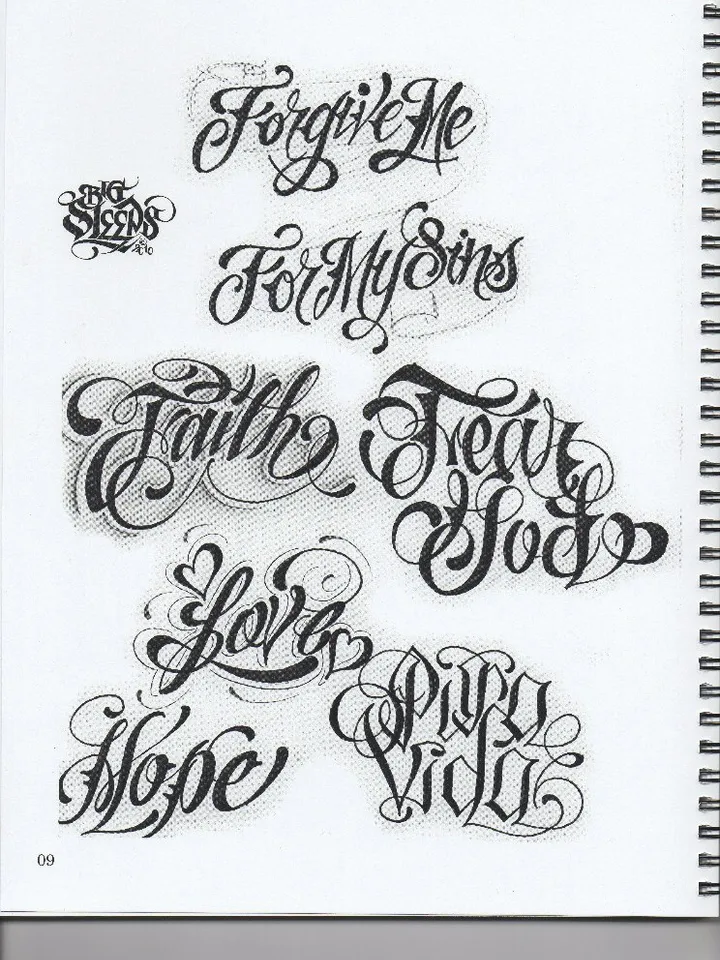 Forgive Me
BIG
SLEEPS
For My Sins
Faith
Fear
God
Love
Pura
Vida
Hope
09